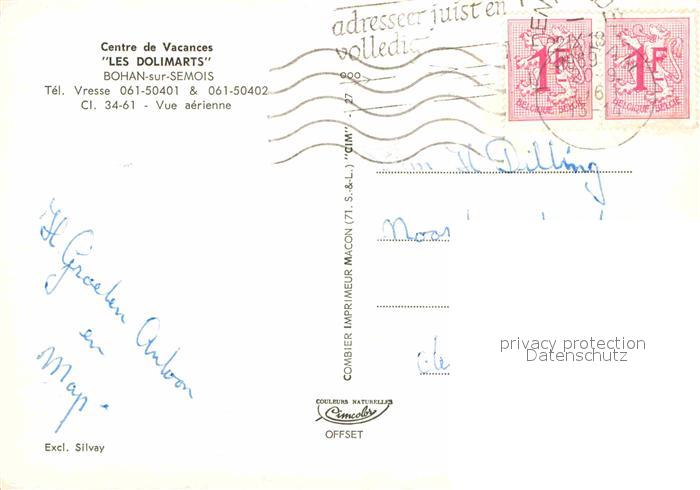 Centre de Vacances
"LES DOLIMARTS"
BOHAN-sur-SEMOIS
Tél. Vresse 061-50401 & 061-50402
Cl. 34-61 - Vue aérienne
adresseer juist en
volledig
1F
BELGIQUE-BELGIË
1F
BELGIQUE-BELGIË
H. Dilling
H. Groeten Antoon
en
COMBIER IMPRIMEUR MACON (71. S.-&-L.) "CIM"
privacy protection
Datenschutz
COULEURS NATURELLES
Cimcolor
OFFSET
Excl. Silvay